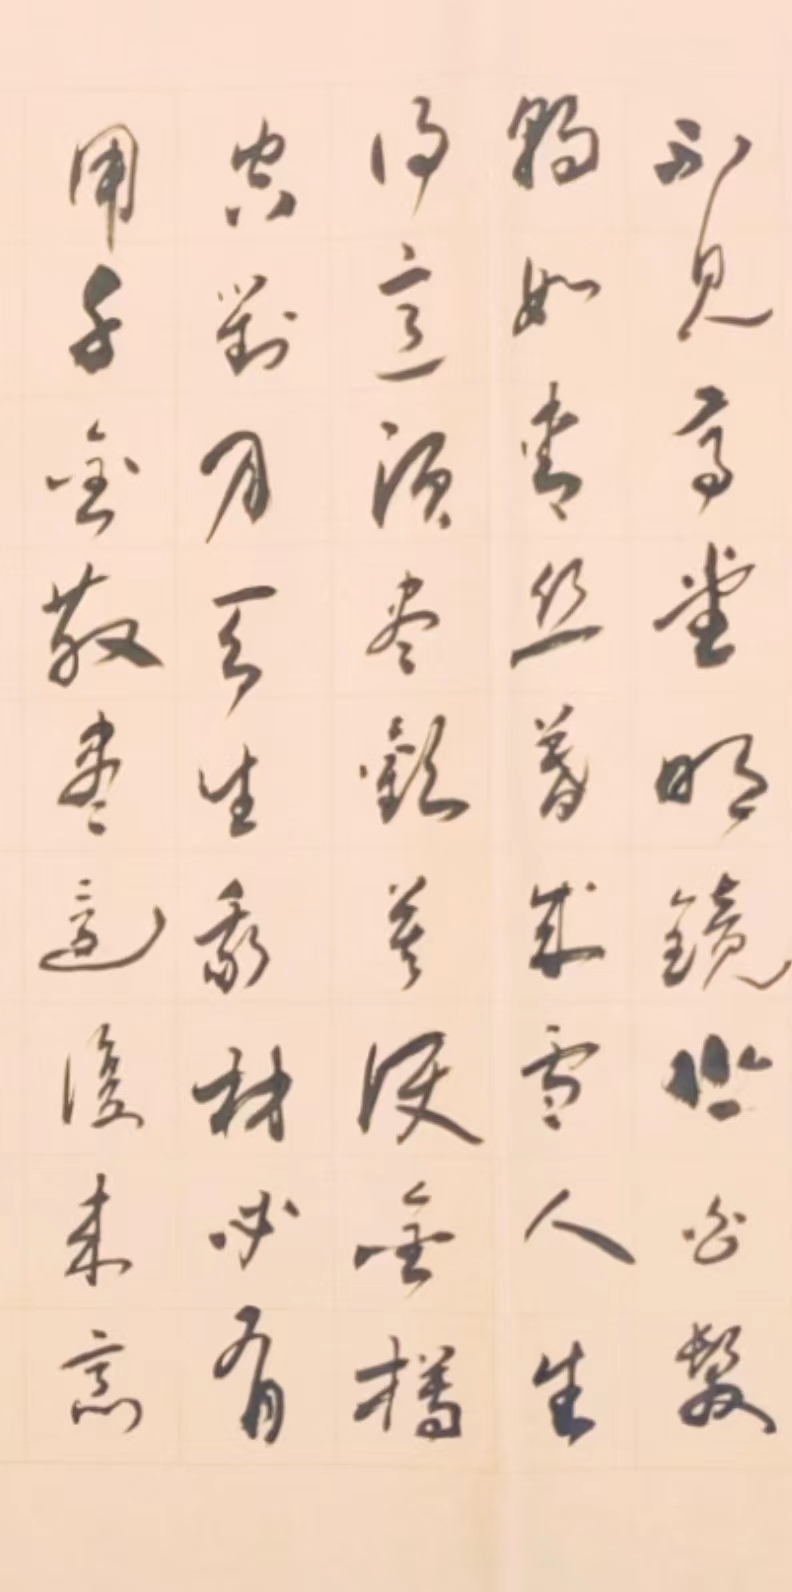 不見高堂明鏡悲白髮
朝如青丝暮成雪人生
得意須尽歡莫使金樽
空對月天生我材必有
用千金散尽還復来烹